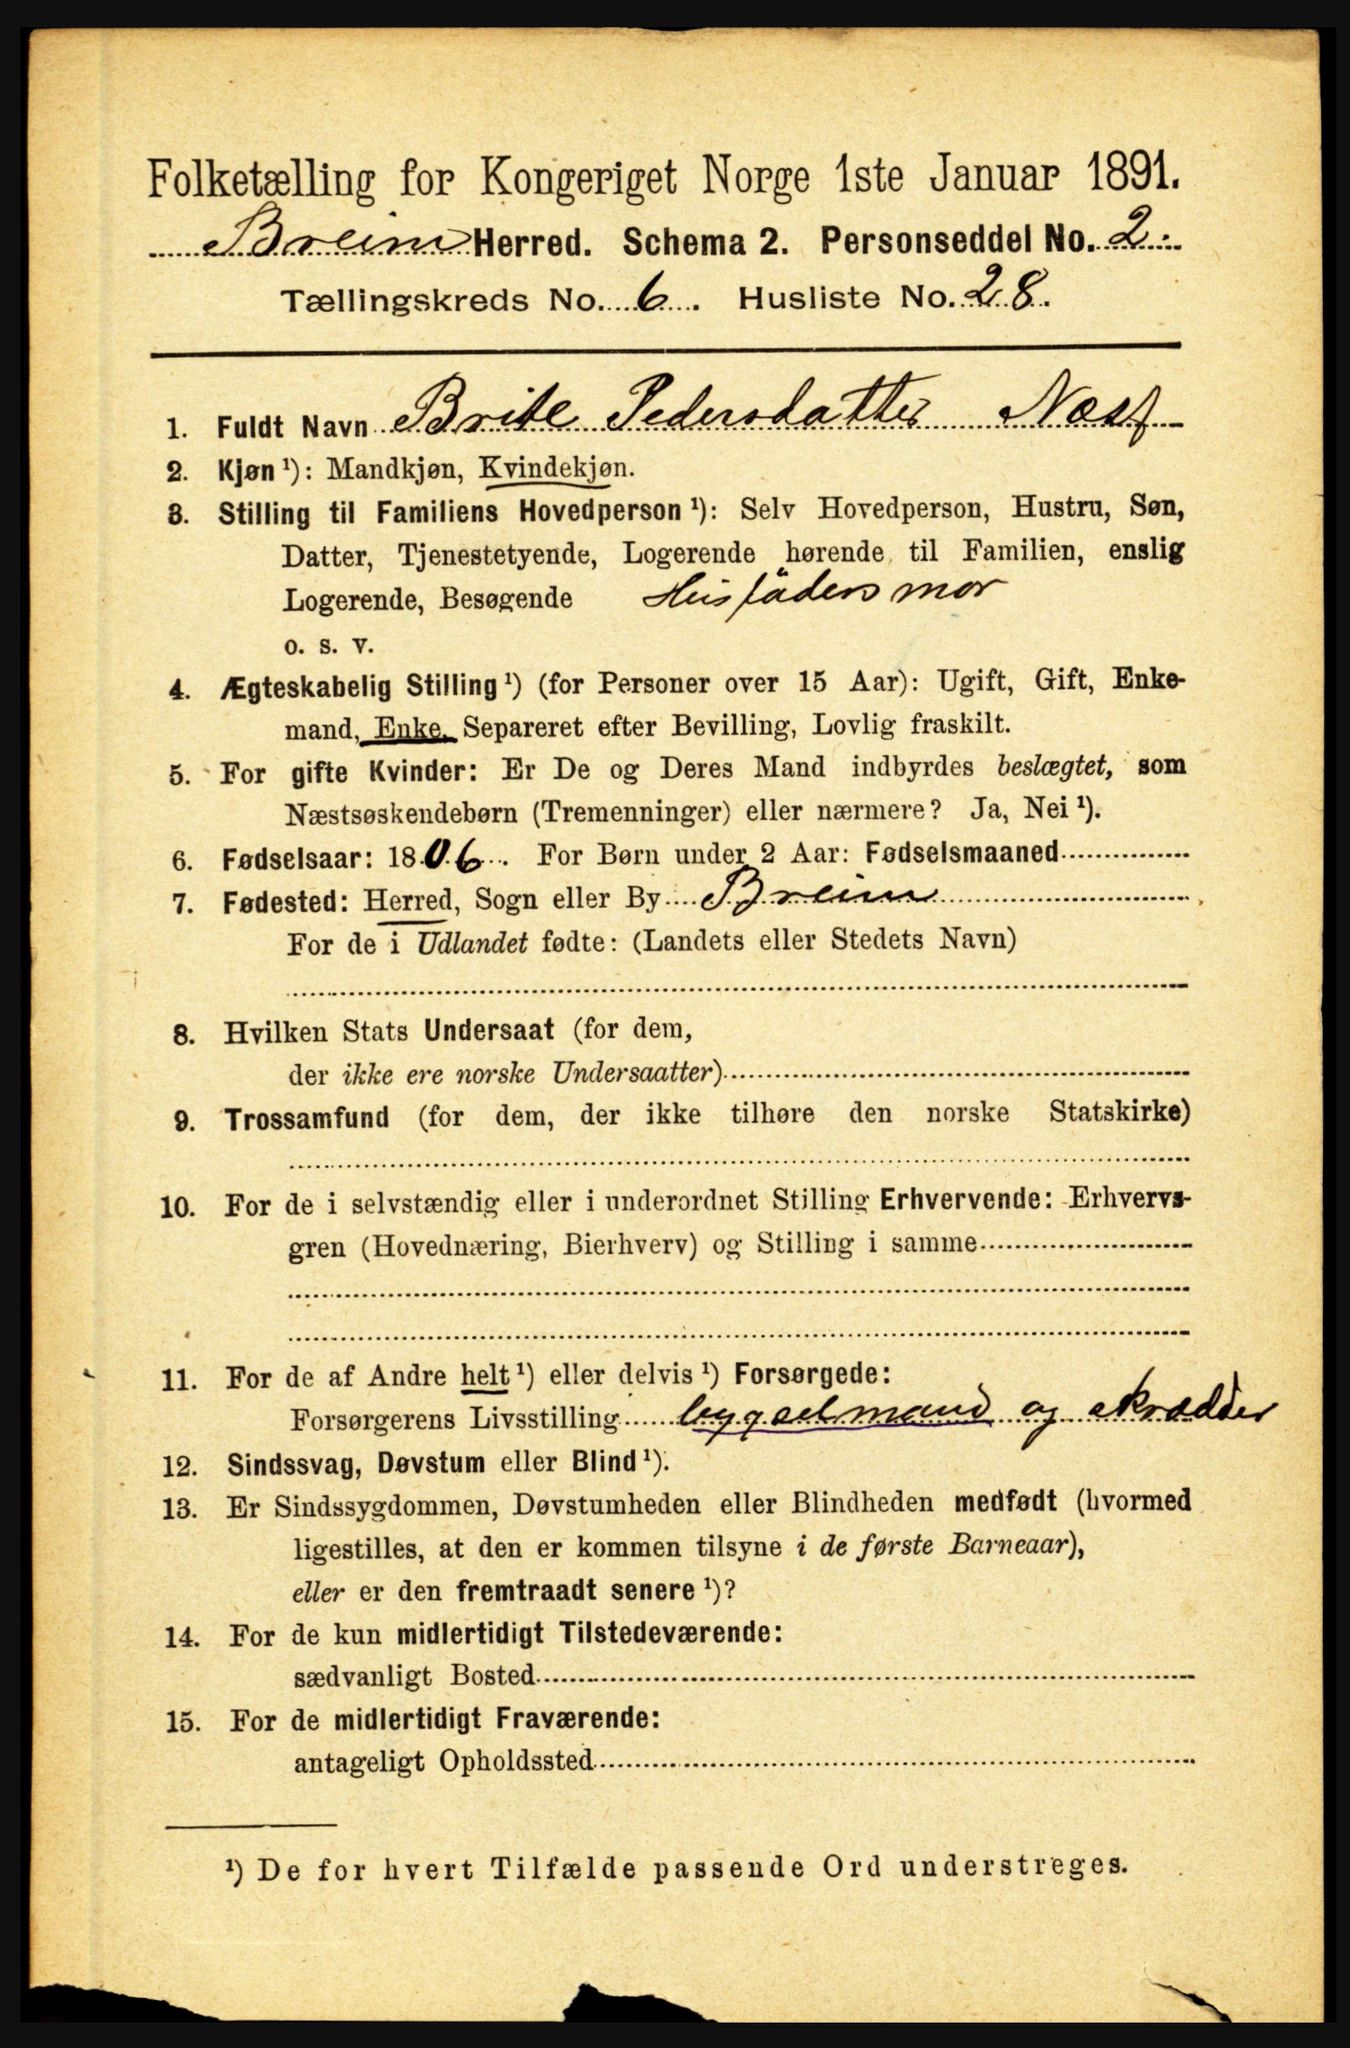 Folketælling for Kongeriget Norge 1ste Januar 1891.
Breim Herred. Schema 2. Personseddel No. 2.
Tællingskreds No. 6. Husliste No. 28.
1. Fuldt Navn Brite Pedersdatter Næss
2. Kjøn ¹): Mandkjøn, Kvindekjøn.
3. Stilling til Familiens Hovedperson ¹): Selv Hovedperson, Hustru, Søn,
Datter, Tjenestetyende, Logerende hørende til Familien, enslig
Logerende, Besøgende Husfaders mor
o. s. v.
4. Ægteskabelig Stilling ¹) (for Personer over 15 Aar): Ugift, Gift, Enke-
mand, Enke, Separeret efter Bevilling, Lovlig fraskilt.
5. For gifte Kvinder: Er De og Deres Mand indbyrdes beslægtet, som
Næstsøskendebørn (Tremenninger) eller nærmere? Ja, Nei ¹).
6. Fødselsaar: 1806. For Børn under 2 Aar: Fødselsmaaned
7. Fødested: Herred, Sogn eller By Breim
For de i Udlandet fødte: (Landets eller Stedets Navn)
8. Hvilken Stats Undersaat (for dem,
der ikke ere norske Undersaatter)
9. Trossamfund (for dem, der ikke tilhøre den norske Statskirke)
10. For de i selvstændig eller i underordnet Stilling Erhvervende: Erhvervs-
gren (Hovednæring, Bierhverv) og Stilling i samme
11. For de af Andre helt ¹) eller delvis ¹) Forsørgede:
Forsørgerens Livsstilling bygselmand og skrædder
12. Sindssvag, Døvstum eller Blind ¹).
13. Er Sindssygdommen, Døvstumheden eller Blindheden medfødt (hvormed
ligestilles, at den er kommen tilsyne i de første Barneaar),
eller er den fremtraadt senere ¹)?
14. For de kun midlertidigt Tilstedeværende:
sædvanligt Bosted
15. For de midlertidigt Fraværende:
antageligt Opholdssted
¹) De for hvert Tilfælde passende Ord understreges.